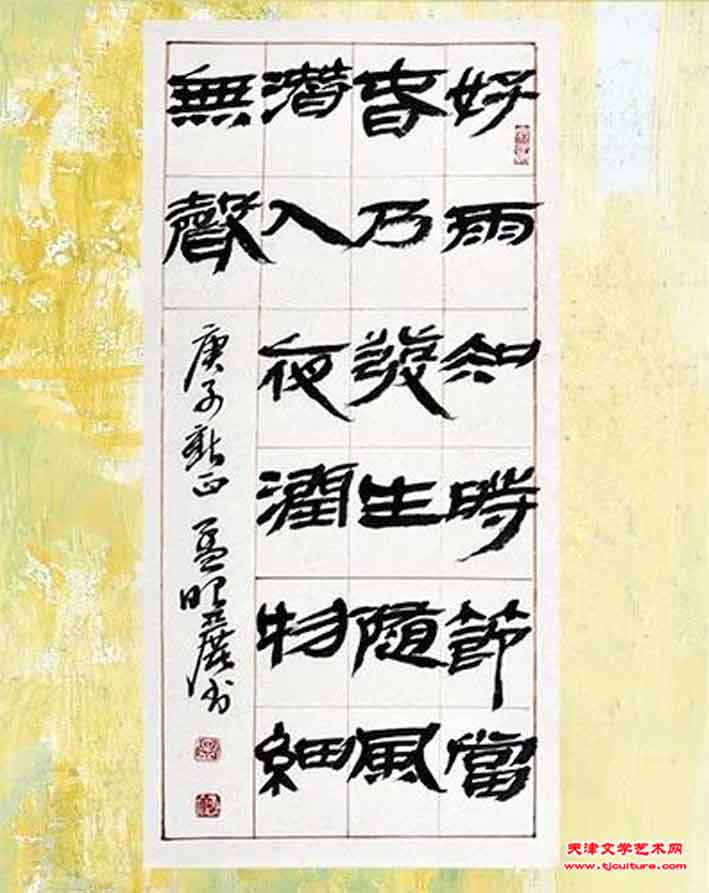 好雨知時節當
春乃發生隨風
潛入夜潤物細
無聲
庚子新正 孟昭廣书
天津文学艺术网
www.tjculture.com